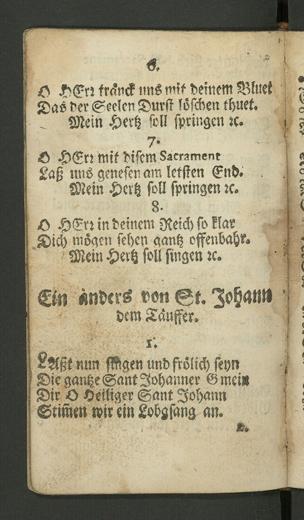 6.
O HErr tränck uns mit deinem Bluet
Das der Seelen Durst löschen thuet.
Mein Hertz soll springen ꝛc.
7.
O HErr mit disem Sacrament
Laß uns genesen am letsten End.
Mein Hertz soll springen ꝛc.
8.
O HErr in deinem Reich so klar
Dich mögen sehen gantz offenbahr.
Mein Hertz soll singen ꝛc.
Ein anders von St. Johann
dem Täuffer.
1.
LAßt nun singen und frölich seyn
Die gantze Sant Johanner Gmein
Dir O Heiliger Sant Johann
Stim̃en wir ein Lobgsang an.
2.